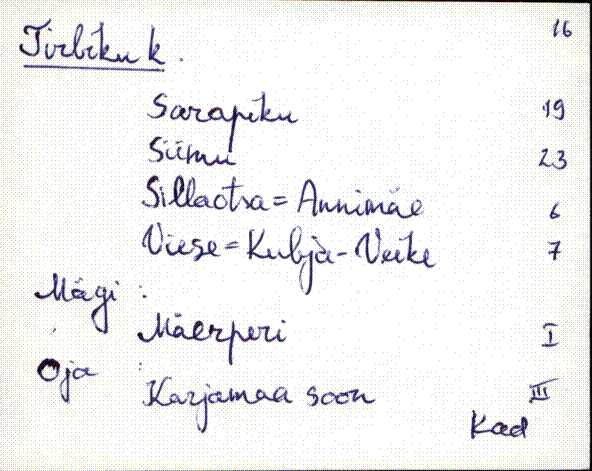 16
Tirbiku k.
Sarapiku 19
Siimu 23
Sillaotsa = Annimäe 6
Viese = Kubja-Veike 7
Mägi :
Mäerperi I
Oja :
Karjamaa soon III
Kad